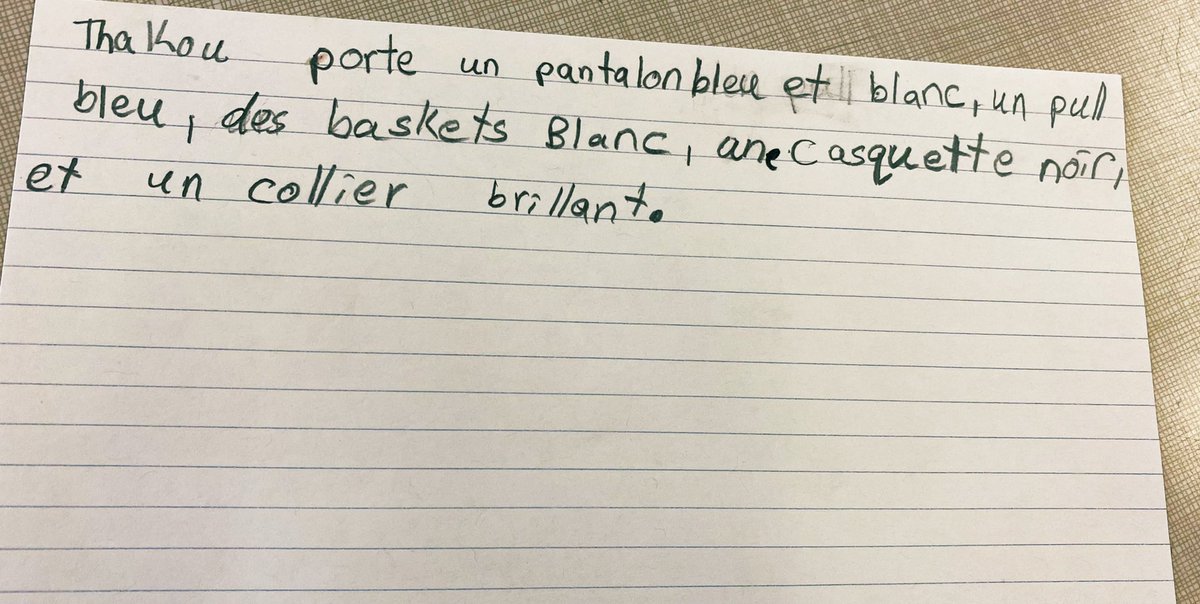 Thakou porte un pantalon bleu et blanc, un pull
bleu, des baskets Blanc, une casquette noir,
et un collier brillant.